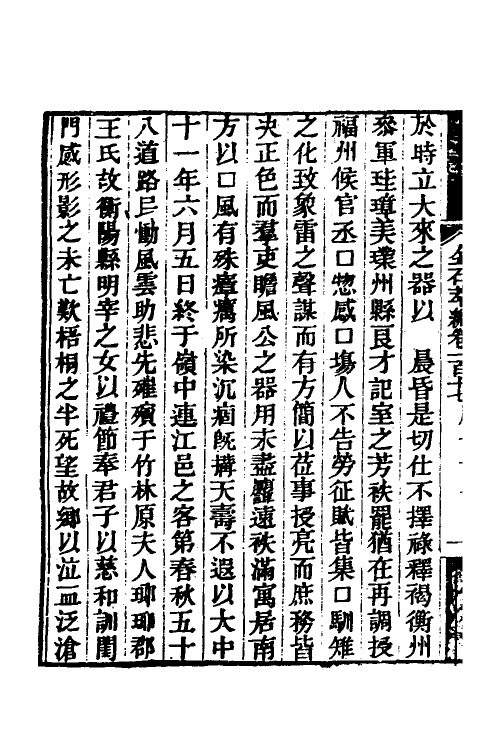 於時立大來之器以　晨昏是切仕不擇祿釋褐衡州
叅軍珪璋美璞州縣良才記室之芳袟罷猶在再調授
福州候官丞口惣感口塲人不告勞征賦皆集口馴雉
之化致象雷之聲謀而有方簡以莅事授亮而庶務皆
决正色而羣吏瞻風公之器用未盡麗遠袟滿寓居南
方以口風有殊瘡癘所染沉痼旣搆天壽不遐以大中
十一年六月五日終于嶺中連江邑之客第春秋五十
八道路民慟風雲助悲先㩁殯于竹林原夫人瑯瑘郡
王氏故衡陽縣明宰之女以禮節奉君子以慈和訓閨
門感形影之未亡歎梧桐之半死望故鄉以泣血泛滄
金石萃編卷一百十七